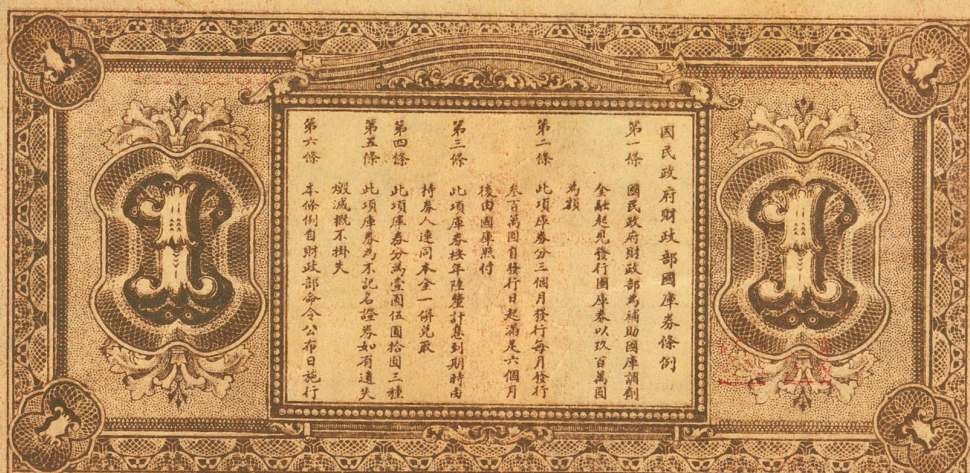 國民政府財政部國庫券條例
第一條 國民政府財政部為補助國庫調劑
金融起見發行國庫券以玖百萬圓
為額
第二條 此項庫券分三個月發行每月發行
叁百萬圓自發行日起滿足六個月
後由國庫照付
第三條 此項庫券按年陸釐計息到期時由
持券人連同本金一併兌取
第四條 此項庫券分為壹圓伍圓拾圓三種
第五條 此項庫券為不記名證券如有遺失
燬滅概不掛失
第六條 本條例自財政部命令公布日施行
1
1